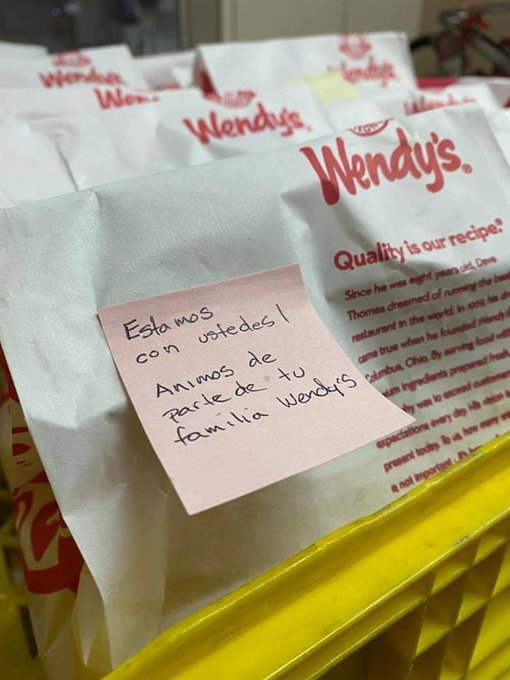 Wendy's
Wendy's
Wendy's
Wendy's®
Quality is our recipe.®
Since he was eight years old, Dave
Thomas dreamed of running the best
restaurant in the world. In
came true when he founded Wendy's
Columbus, Ohio. By serving food
ingredients prepared fresh
was to exceed
expectations every day. His vision is
present today. To us
is not important.
Estamos
con ustedes!
Animos de
parte de tu
familia Wendy's